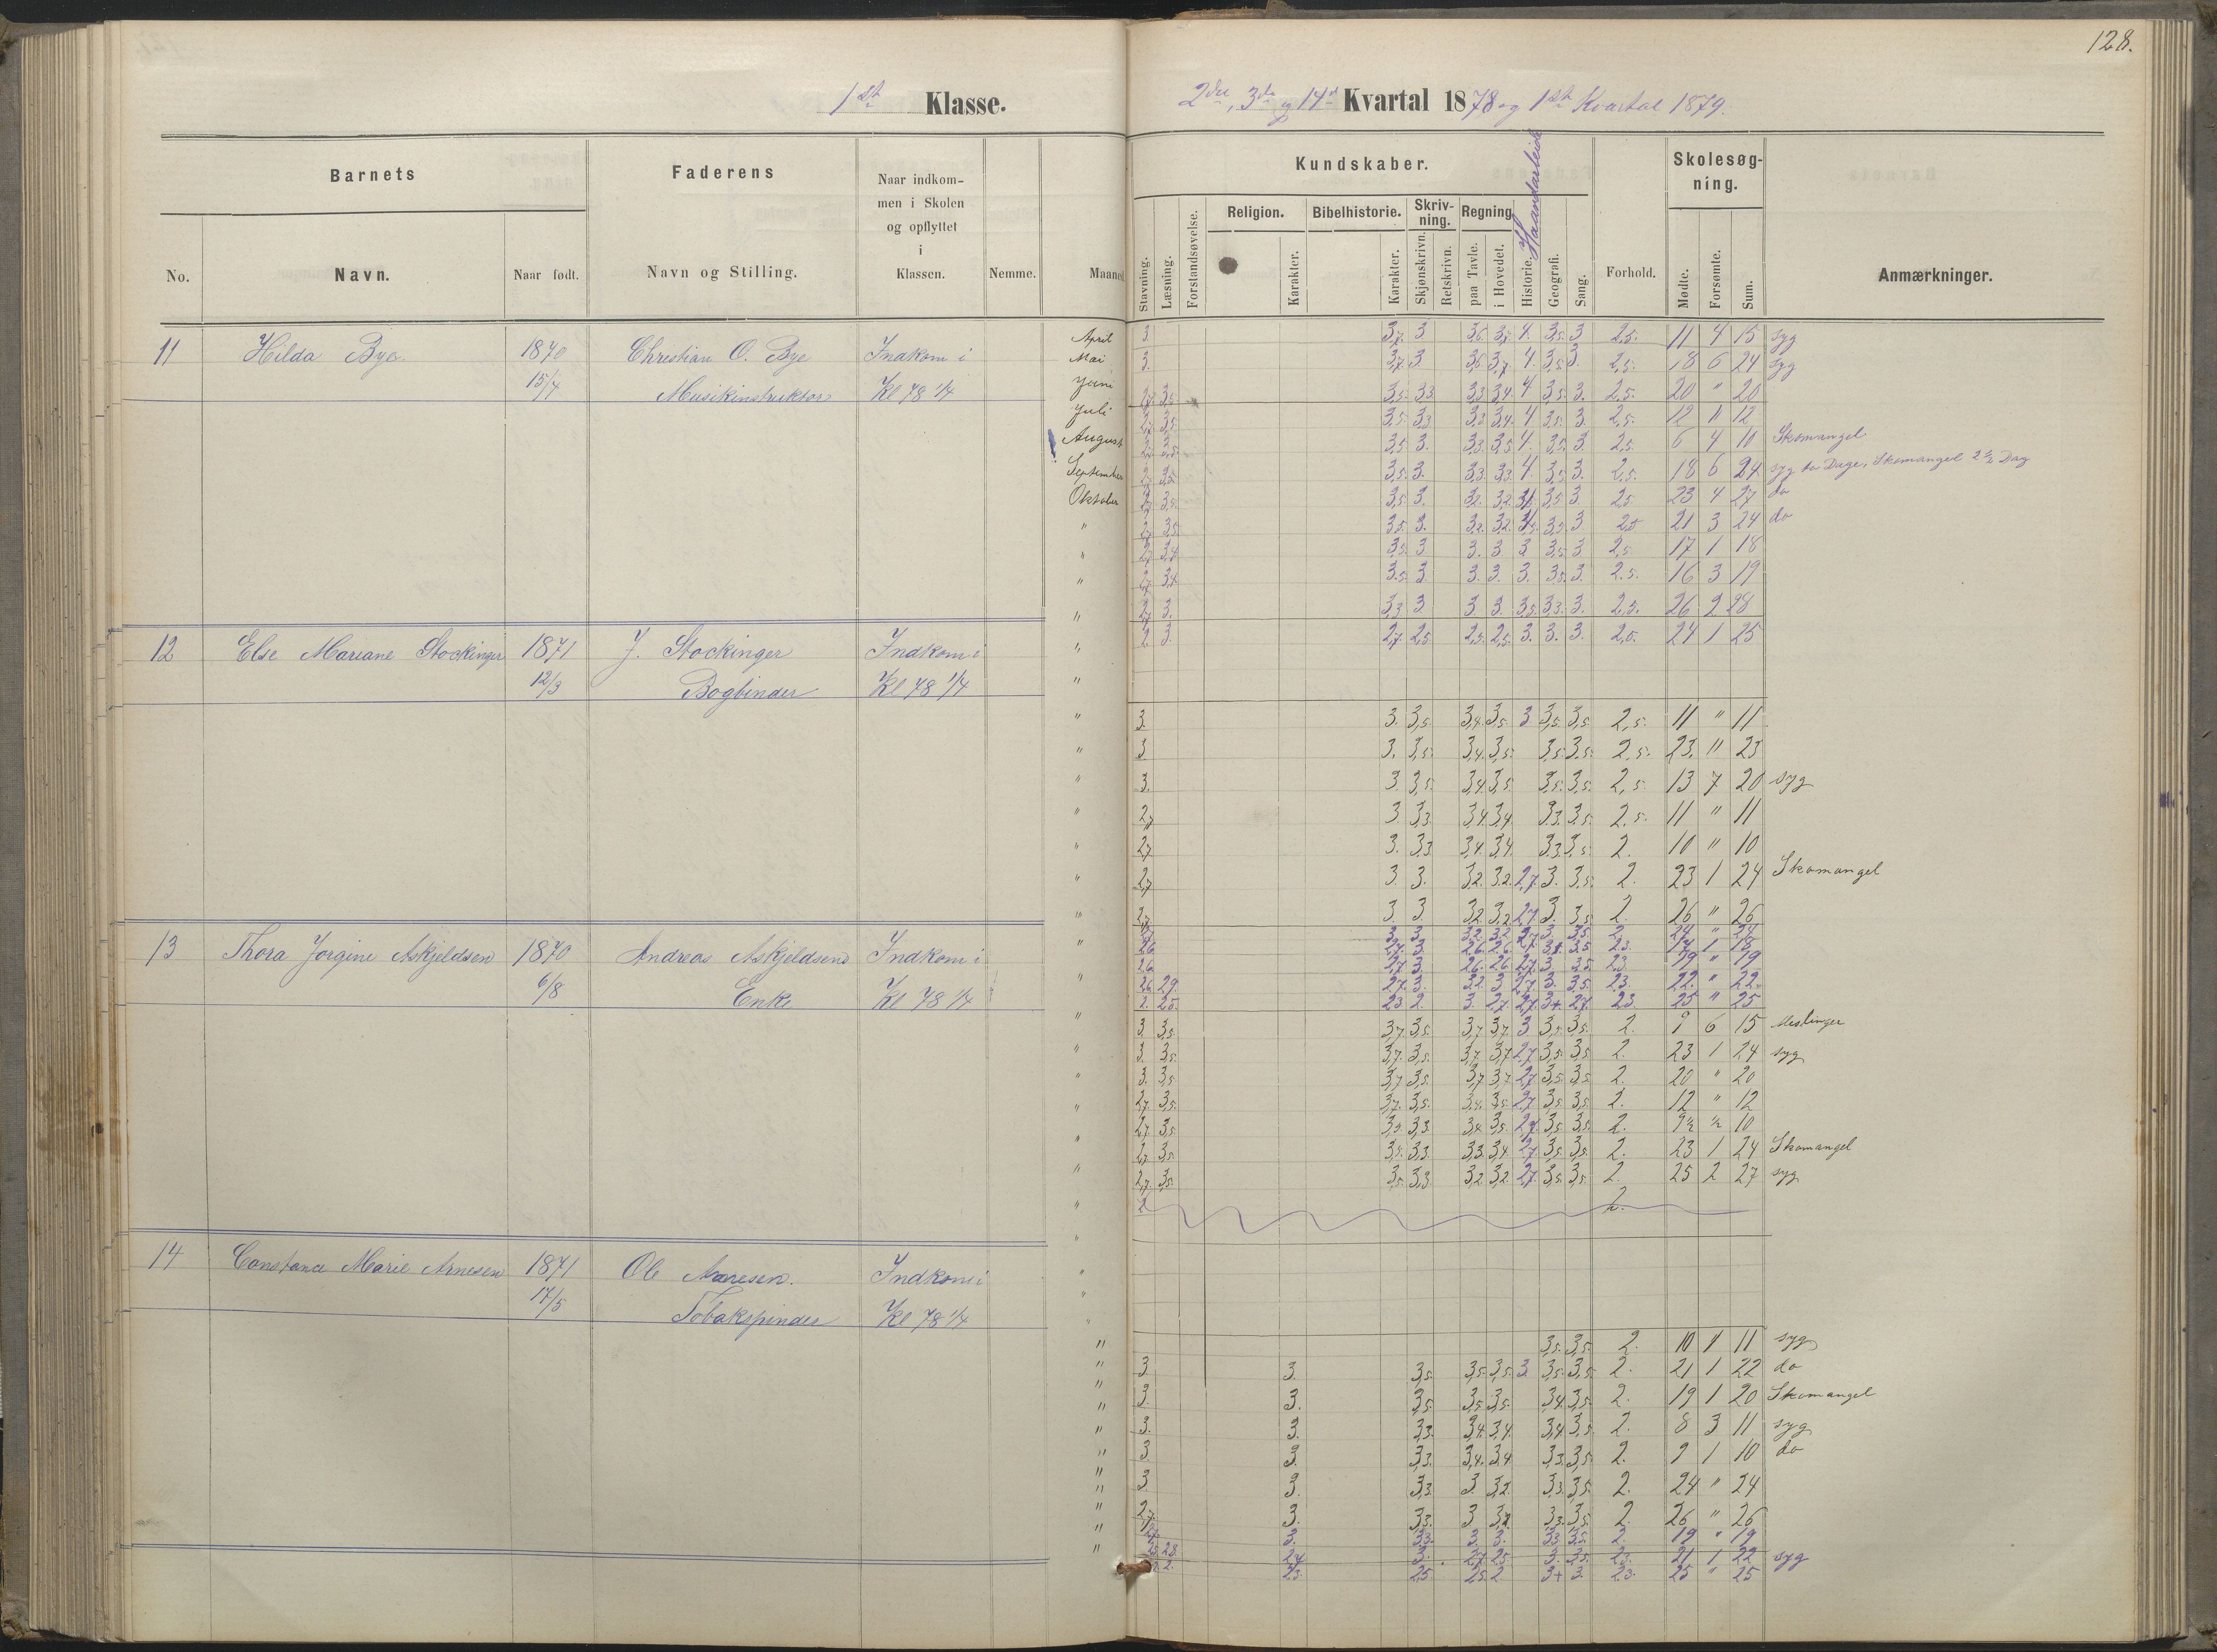 128.
1ste Klasse.
2den, 3de og 14de Kvartal 1878 og 1ste Kvartal 1879.
Barnets
Faderens
Naar indkom-
men i Skolen
og opflyttet
i
Klassen.
No.
Navn.
Naar født.
Navn og Stilling.
Nemme.
Maaned
Kundskaber.
Skolesøg-
ning.
Stavning.
Læsning.
Forstandsøvelse.
Religion.
Bibelhistorie.
Skriv-
ning.
Regning
Haandarbeide
Karakter.
Karakter.
Skjønskrivn.
Retskrivn.
paa Tavle.
i Hovedet.
Historie.
Geografi.
Sang.
Forhold.
Mødte.
Forsømte.
Sum.
Anmærkninger.
11 Hilda Bye. 1870 Christian O. Bye Indkom i
15/4 Musikinstruktør Kl 78 1/4
April
Mai
Juni
Juli
August
September
Oktober
3. 3,7. 3 3,6. 3,7. 4. 3,5. 3 2,5. 11 4 15 syg
3. 3,7. 3. 3,6. 3,7. 4. 3,5. 3. 2,5. 18 6 24 syg
2,7. 3,5. 3,5. 3,3 3,3 3,4. 4 3,5 3. 2,5. 20 " 20
2,7. 3,5. 3,5. 3,3 3,3 3,4. 4 3,5. 3. 2,5. 12 " 12
3,5. 3. 3,3. 3,5 4. 3,5. 3. 2,5. 6 4 10 Skomangel
2,7. 3,5. 3,5. 3. 3,3. 3,3. 4. 3,5. 3. 2,5. 18 6 24 syg to Dage, Skomangel 2 1/2 Dag
2,7. 3,5. 3,5. 3. 3,2. 3,2. 3,5 3 2,5. 23 4 27 do
2,7. 3,5. 3,5. 3. 3,2. 3,2. 3,5. 3. 2,5 21 3 24 do
2,7. 3,4 3,5. 3 3. 3. 3 3,5. 3 2,5 17 1 18
2,7. 3,4. 3,5. 3 3. 3. 3. 3,5. 3. 2,5. 16 3 19
2,7. 3. 3,3 3 3 3. 3,5. 3,3. 3. 2,5. 26 2 28
2. 3 2,7. 2,5. 2,5. 2,5. 3. 3. 3. 2,5. 24 1 25
12 Else Mariane Stockinger 1871 J. Stockinger Indkom i
12/3 Bogbinder Kl 78 1/4
3. 3. 3,5. 3,4. 3,5. 3 3,5. 3,5. 2,5. 11 " 11
3 3. 3,5. 3,4. 3,5. 3,5. 3,5. 2,5. 23. " 23
3. 3. 3,5. 3,4. 3,5 3,5. 3,5. 2,5 13 7 20 syg
2,7 3. 3,3. 3,4. 3,4. 3,3. 3,5. 2,5. 11 " 11
2,7. 3. 3,3 3,4. 3,4. 3,3. 3,5. 2. 10 " 10
2,7 3. 3. 3,2. 3,2. 2,7. 3. 3,5. 2. 23 1 24 Skomangel
2,7 3. 3 3,2 3,2 2,7. 3. 3,5 2. 26 " 26
3. 3 3,2. 3,2 2,7 3. 3,5. 2. 24 " 24
2,6 2,7. 3 2,6. 2,6. 2,7 3+ 3,5 2,3. 17 1 18
2,6 2,7. 3. 2,6. 2,6 2,7. 3. 3,5 2,3 19 " 19
2,6 2,9. 2,7. 3. 2,2 3 2,7. 3. 3,5. 2,3. 22. " 22
2. 2,5. 2,3 2. 3. 2,7. 2,7. 3+ 2,7. 2,3. 25 " 25
13 Thora Jorgine Askjeldsen 1870 Andreas Askjeldsens Indkom i
6/8 Enke Kl 78 1/4
3. 3,5 3,7. 3,5. 3,7. 3,7. 3 3,5. 3,5. 2. 9 6 15 Meslinger
3. 3,5. 3,7. 3,5. 3,7. 3,7 2,7 3,5. 3,5 2. 23 1 24 syg
3. 3,5 3,7 3,5. 3,7. 3,7. 2,7. 3,5 3,5 2. 20 " 20
2,7. 3,5. 3,7. 3,5. 3,5. 3,5. 2,7 3,5 3,5. 2. 12 " 12
2,7. 3,5. 3,5 3,3. 3,4 3,5. 2,7. 3,5 3,5. 2. 9½ ½ 10
2,7. 3,5. 3,5. 3,3. 3,3. 3,4. 2,7 3,5 3,5. 2. 23 1 24 Skomangel
2,7. 3,5. 3,5. 3,3 3,2 3,2. 2,7. 3,5. 3,5. 2. 25 2 27 syg
2 2.
14 Constance Marie Arnesen 1871 Ole Arnesen. Indkom i
17/5 Tobakspinder Kl 78 1/4
3,5. 3,5. 2. 10 1 11 syg
3. 3. 3,5. 3,5. 3,5. 3. 3,5. 3,5 2. 21 1 22 do
3. 3. 3,5. 3,5 3,5. 3,4. 3,5. 2. 19 1 20 Skomangel
3. 3. 3,3. 3,4. 3,4. 3,4 3,5. 2. 8 3 11 syg
3. 3. 3,3. 3,4. 3,4 3,3. 3,5. 2. 9 1 10 do
3 3. 3,3. 3. 3,2. 3,3. 3,5. 2. 24 " 24
2,7. 3. 3,3. 3 3,2 3,3. 3,5. 2. 26 " 26
2,7. 3. 3,3. 3. 3. 3,3 3,5. 2. 19 " 19
2,5. 2,8. 2,4 3. 2,7. 2,5. 3. 3,5. 2,3. 21 1 22 syg
2. 2. 2,3. 2,5. 2,5. 2 3+ 3. 2,3. 25 " 25